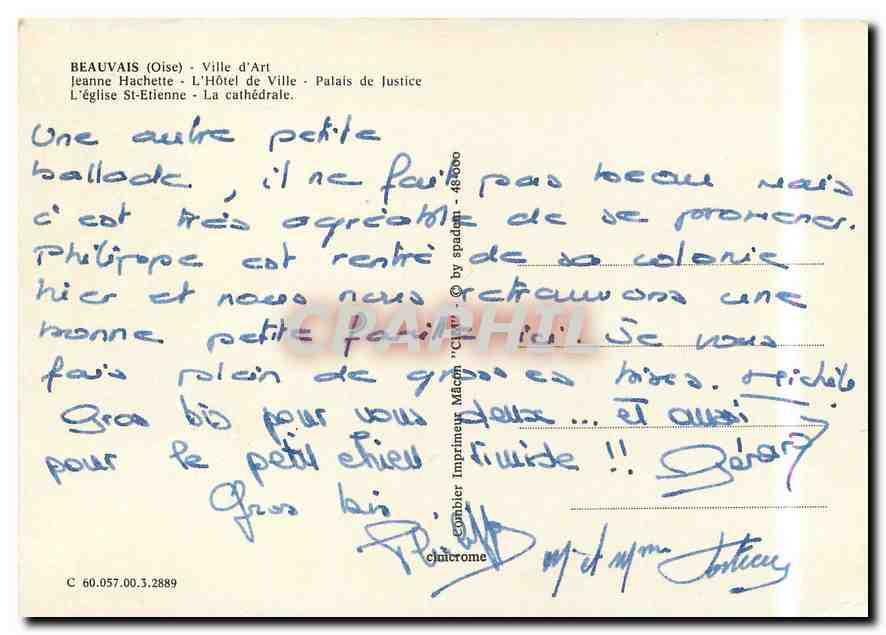 BEAUVAIS (Oise) - Ville d'Art
Jeanne Hachette - L'Hôtel de Ville - Palais de Justice
L'église St-Etienne - La cathédrale.
Une autre petite
ballade, il ne fait pas beau mais
c'est très agréable de se promener.
Philippe est rentré de sa colonie
hier et nous nous retrouvons une
bonne petite famille ici. Je vous
fais plein de grosses bises. Michèle
Gros bis pour vous deux... et aussi
pour le petit chien timide !! Gérard
Gros bis
Philippe
M et Mme
Combier Imprimeur Mâcon "CIM" - © by spadem - 48-000
cimcrome
C 60.057.00.3.2889
CPAPHIL